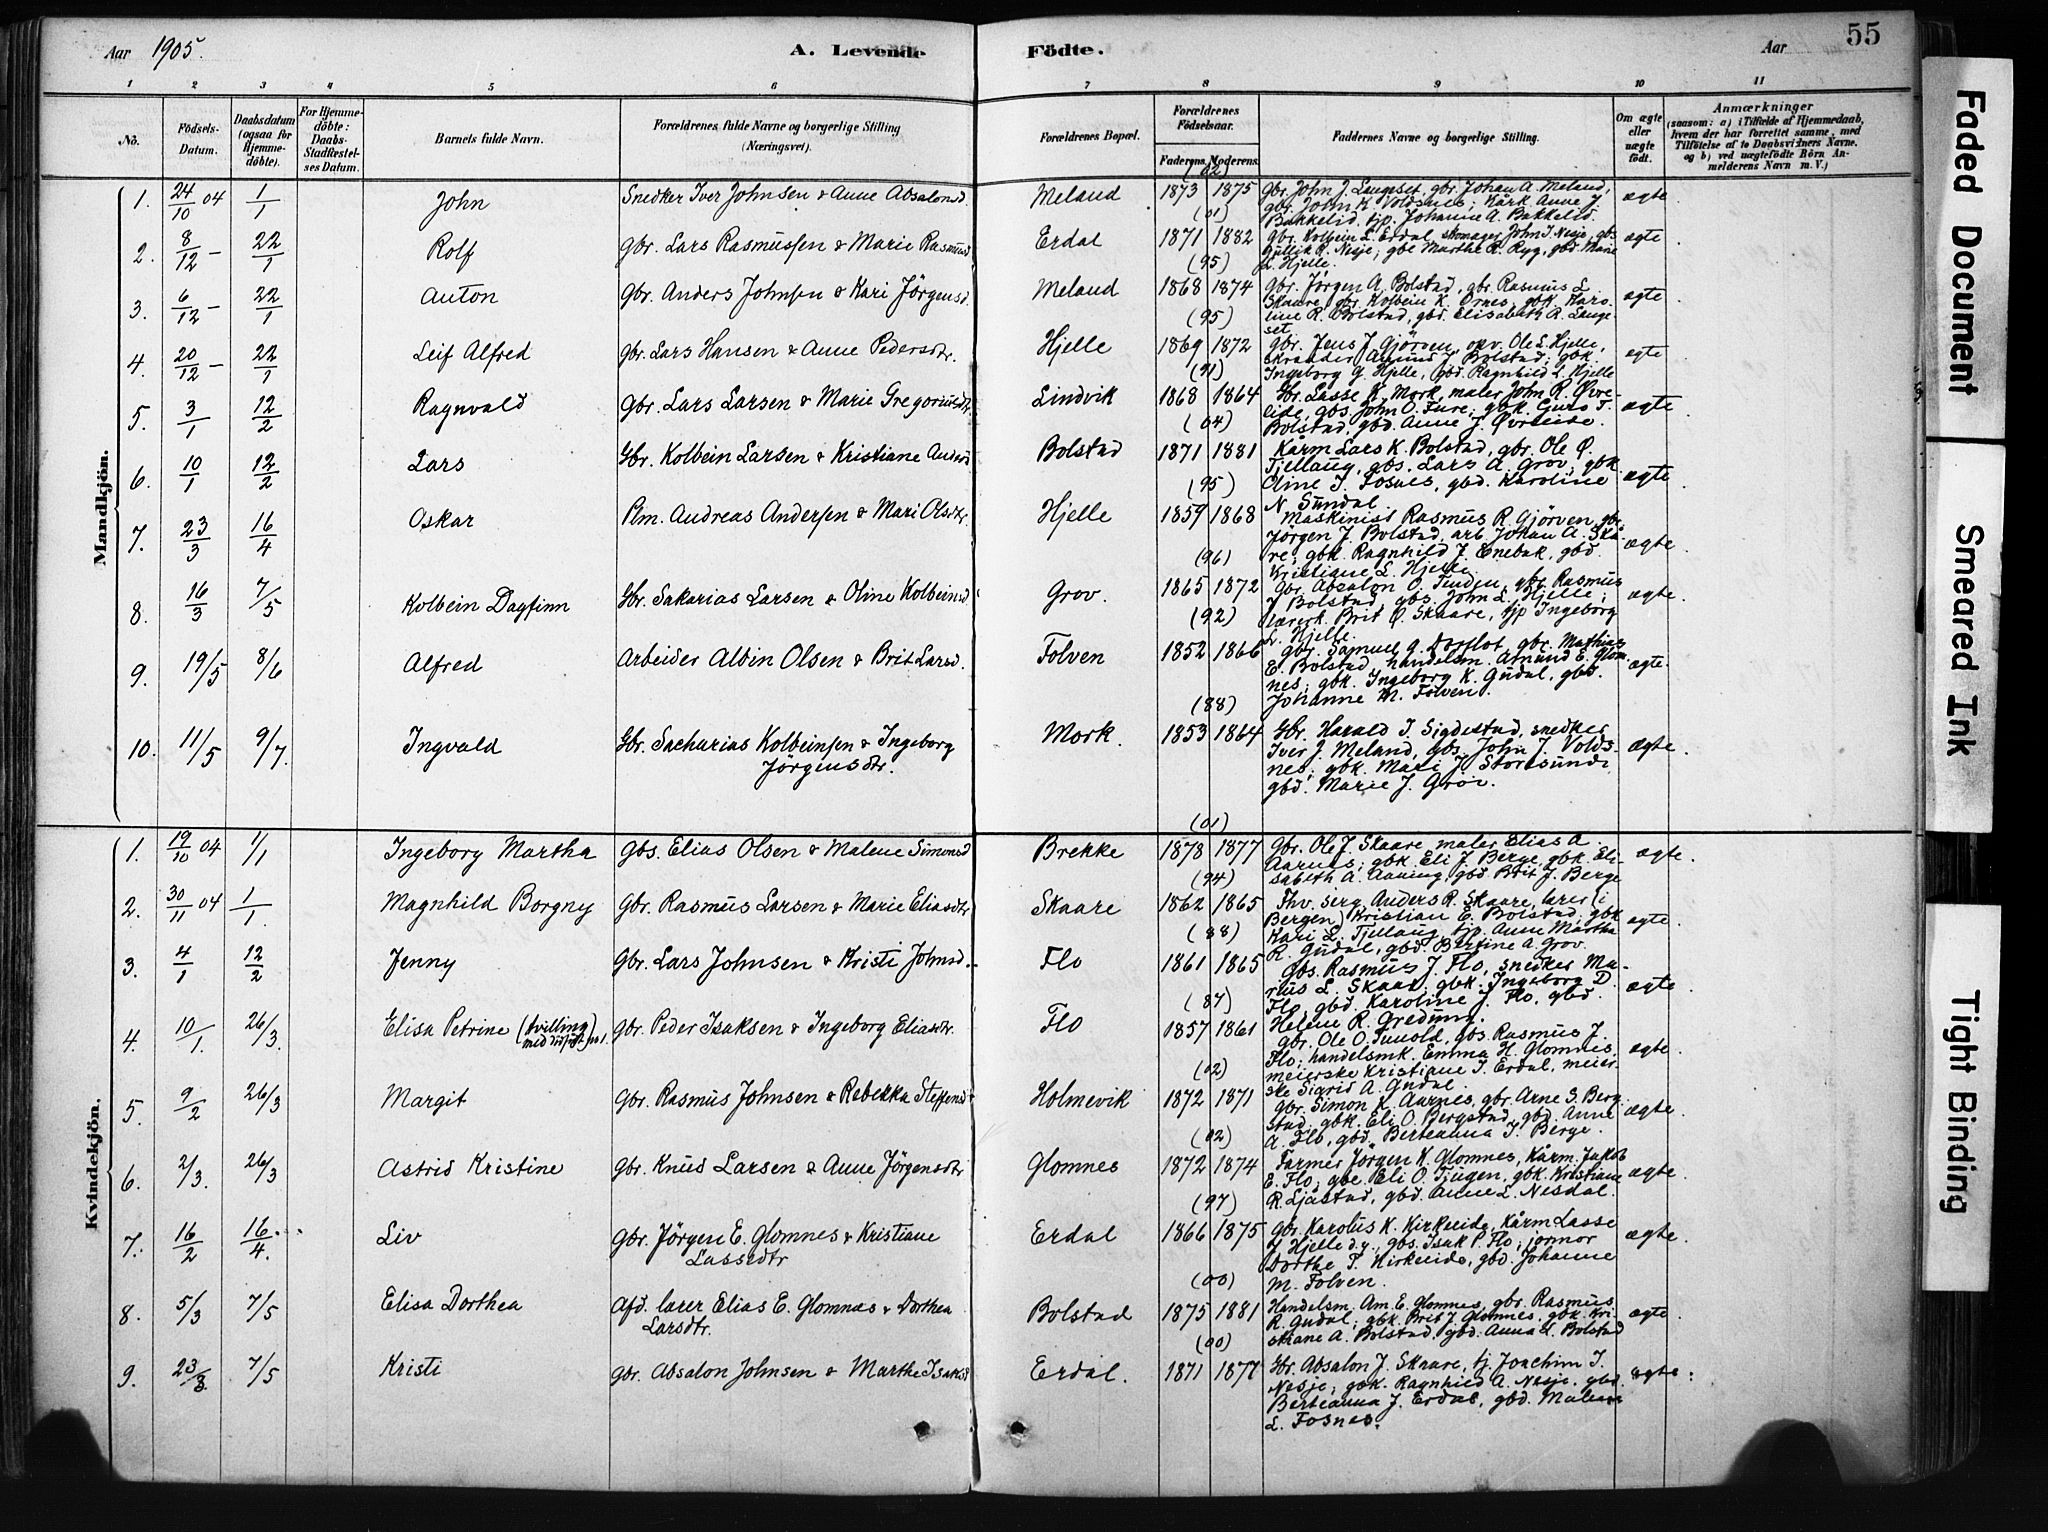 Aar 1905. A. Levende Födte. Aar 55
1 2 3 4 5 6 7 8 9 10 11
No. Födsels-Datum. Daabsdatum (ogsaa for Hjemmedöbte). For Hjemmedöbte: Daabs-Stadfæstelses Datum. Barnets fulde Navn. Forældrenes fulde Navne og borgerlige Stilling (Næringsvei). Forældrenes Bopæl. Forældrenes Födselsaar. Faderens. Moderens. Faddernes Navne og borgerlige Stilling. Om ægte eller uægte födt. Anmærkninger (saasom: a) i Tilfælde af Hjemmedaab, hvem der har forrettet samme, med Tilföielse af to Daabsvidners Navne, og b) ved uægtefödte Börn Anmelderens Navn m. V.)
Mandkjön.
(02)
1. 24/10 04 1/1 John Snedker Iver Johnsen & Anne Absalonsd. Meland 1873 1875 gbr. John J. Langeset, gbr. Johan A. Meland, ægte
gbr. John K. Voldsnes; kårk. Anne J.
(01) Bakkelid, tjp. Johanne A. Bakkelid.
2. 8/12 – 22/1 Rolf gbr. Lars Rasmussen & Marie Rasmusd Erdal 1871 1882 gbr. Kolbein L. Erdal, skomager John I. Nesje, gbs. ægte
Gullik R. Nesje; gbe Marthe R. Ryg, gbd. Marie
(95) L. Hjelle.
3. 6/12 – 22/1 Anton Gbr. Anders Johnsen & Kari Jörgensd. Meland 1868 1874 Gbr. Jörgen A. Bolstad, gbr. Rasmus L. ægte
Skaare, gbr. Kolbein K. Ornes, gbk. Karo-
(95) line R. Bolstad, gbd. Elisabeth R. Lange-
set.
4. 20/12 – 22/1 Leif Alfred Gbr. Lars Hansen & Anne Pedersdtr. Hjelle 1869 1872 gbr. Jens J. Gjörven, opv. Ole L. Hjelle, ægte
skrædder Amund J. Bolstad; gbk.
(91) Ingeborg G. Hjelle, gbd. Ragnhild L. Hjelle
5. 3/1 12/2 Ragnvald gbr. Lars Larsen & Marie Gregoriusdtr. Lindvik 1868 1864 Gbr. Lasse K. Mork, maler John R. Øvre- ægte
eide, gbs. John O. Fure; gbk. Guro T.
(04) Bolstad, gbd. Anne J. Øvreeide.
6. 10/1 12/2 Lars Gbr. Kolbein Larsen & Kristiane Andersd Bolstad 1871 1881 Kårm Lars K. Bolstad, gbr. Ole Ø. ægte
Tjellaug, gbs. Lars A. Grov, gbk.
(95) Oline J. Fosnes, gbd. Karoline
N. Sundal.
7. 23/3 16/4 Oskar Plm. Andreas Andersen & Mari Olsdtr. Hjelle 1859 1868 Maskinist Rasmus R. Gjörven, gbr. ægte.
Jörgen J. Bolstad, arb. Johan A. Skå-
(96) re; gbk. Ragnhild J. Enebak, gbd.
Kristiane L. Hjelle.
8. 16/3 7/5 Kolbein Dagfinn Gbr. Sakarias Larsen & Oline Kolbeinsd Grov. 1865 1872 Gbr. Absalon O. Tenden, gbr. Rasmus ægte.
J Bolstad, gbs. John L. Hjelle;
(92) lærerk. Brit Ø. Skaare, tjp Ingeborg
L. Hjelle.
9. 19/5 8/6 Alfred Arbeider Albin Olsen & Brit Larsd. Folven 1852 1866 gbr. Samuel G. Dorflot, gbr. Mathias ægte.
E. Bolstad, handelsm. Amund E. Glom-
nes; gbk. Ingeborg K. Gudal, gbd.
(88) Johanne M. Folven.
10. 11/5 9/7. Ingvald Gbr. Sacharias Kolbeinsen & Ingeborg Mork. 1853 1864 Gbr. Harald I. Sigdestad, snedker ægte.
Jörgensdtr. Iver J. Meland, gbs. John J. Volds-
nes; gbk. Mari J. Storesunde,
gbd. Marie J. Grov.
(01)
Kvindekjön.
1. 19/10 04 1/1 Ingeborg Martha Gbs. Elias Olsen & Malene Simonsd Brekke 1878 1877 Gbr. Ole J. Skaare, maler Elias A. ægte.
Aarnes; gbk. Eli J. Berge, gbk. Eli-
(94) sabeth A. Aaning, gbd Brit J. Berge
2. 30/11 04 1/1 Magnhild Borgny Gbr. Rasmus Larsen & Marie Eliasdtr Skaare 1862 1865 Fhv. serg. Anders R. Skaare, lærer (i ægte
Bergen) Kristian E. Bolstad; gbk
(88) Kari L. Tjellaug, tjp. Anne Martha
R. Gudal, gbd. Bertine A. Grov.
3. 4/1 12/2 Jenny Gbr. Lars Johnsen & Kristi Johnsd. Flo 1861 1865 gbs. Rasmus J. Flo, snedker Ma- ægte.
rius L. Skaar; gbk. Ingeborg D.
(87) Flo, gbd. Karoline J. Flo, gbd.
Helene R. Gredung.
4. 10/1. 26/3. Elisa Petrine (tvilling med dödfødt) no 1. gbr. Peder Isaksen & Ingeborg Eliasdtr. Flo 1857 1861 gbr. Ole O. Tunold, gbs. Rasmus J. ægte.
Flo; handelsmk. Emma H. Glomnes,
(02) meierske Kristiane I. Erdal, meier-
ske Sigrid A. Gudal.
5. 9/2 26/3 Margit Gbr. Rasmus Johnsen & Rebekka Steffensd Holmevik 1872 1871 gbr. Simon K. Aarnes, gbr. Arne S. Berg- ægte.
stad; gbk. Eli O. Bergstad, gbd. Anne
(02) A. Flo, gbd. Berteanna I. Berge.
6. 2/3. 26/3 Astrid Kristine Gbr. Knud Larsen & Anne Jörgensdtr Glomnes 1872 1874 Farmer Jörgen K. Glomnes, kårm. Jakob ægte.
E. Flo; gbe Eli O. Tjugen, gbk. Kristiane
(97) R. Sjåstad, gbd. Anne L. Nesdal.
7. 16/2 16/4. Liv Gbr. Jörgen E. Glomnes & Kristiane Erdal 1866 1875 Gbr. Karolus K. Kirkeeide, kårm Lasse ægte.
Lassedtr J Hjelle d.y., gbs. Isak P. Flo; jormor
Dorthe T. Kirkeeide, gbd. Johanne
(00) M. Folven.
8. 5/3 7/5 Elisa Dorthea Afd. lærer Elias E. Glomnes & Dorthea Bolstad 1875 1881 Handelsm. Am. E. Glomnes, gbr. Rasmus ægte.
Larsdtr. R. Gudal; gbk. Brit J. Glomnes, gbk. Kri-
(00) stiane A. Bolstad, gbd. Anna L. Bolstad
9. 23/3 7/5 Kristi gbr. Absalon Johnsen & Marthe Isaksd Erdal. 1871 1877 Gbr. Absalon J. Skaare, tj. Joachim I. ægte.
Nesje; gbk. Ragnhild A. Nesje, gbd.
Berteanna J. Erdal, gbd. Malene
L. Fosnes.
Faded Document
Smeared Ink
Tight Binding